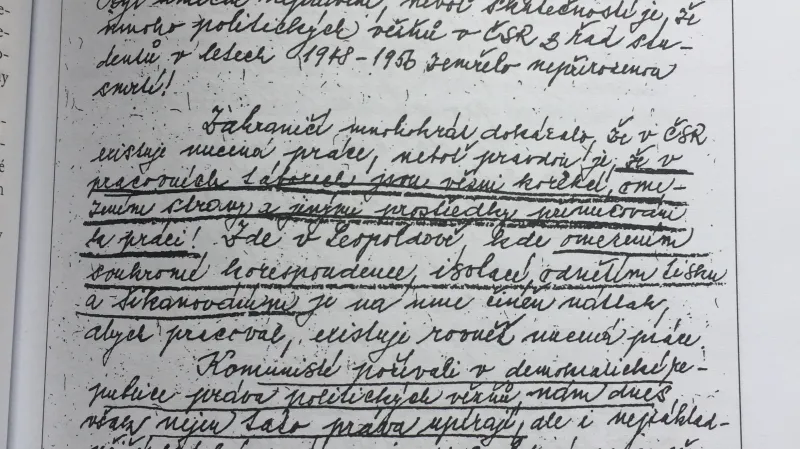 mnoho politických vězňů v ČSR z řad stu-
dentů v letech 1948-1956 zemřelo nepřirozenou
smrtí!
Zahraničí mnohokrát dokázalo, že v ČSR
existuje nucená práce, neboť pravdou je, že v
pracovních táborech jsou vězni korekcí, ome-
zením stravy a jinými prostředky přinucováni
k práci! Zde v Leopoldově, kde omezením
soukromé korespondence, isolací, odnětím tisku
a šikanováním je na mne činěn nátlak,
abych pracoval, existuje rovněž nucená práce.
Komunisté požívali v demokratické re-
publice práva politických vězňů, nám dnes
však nejen tato práva upírají, ale i nejzáklad-